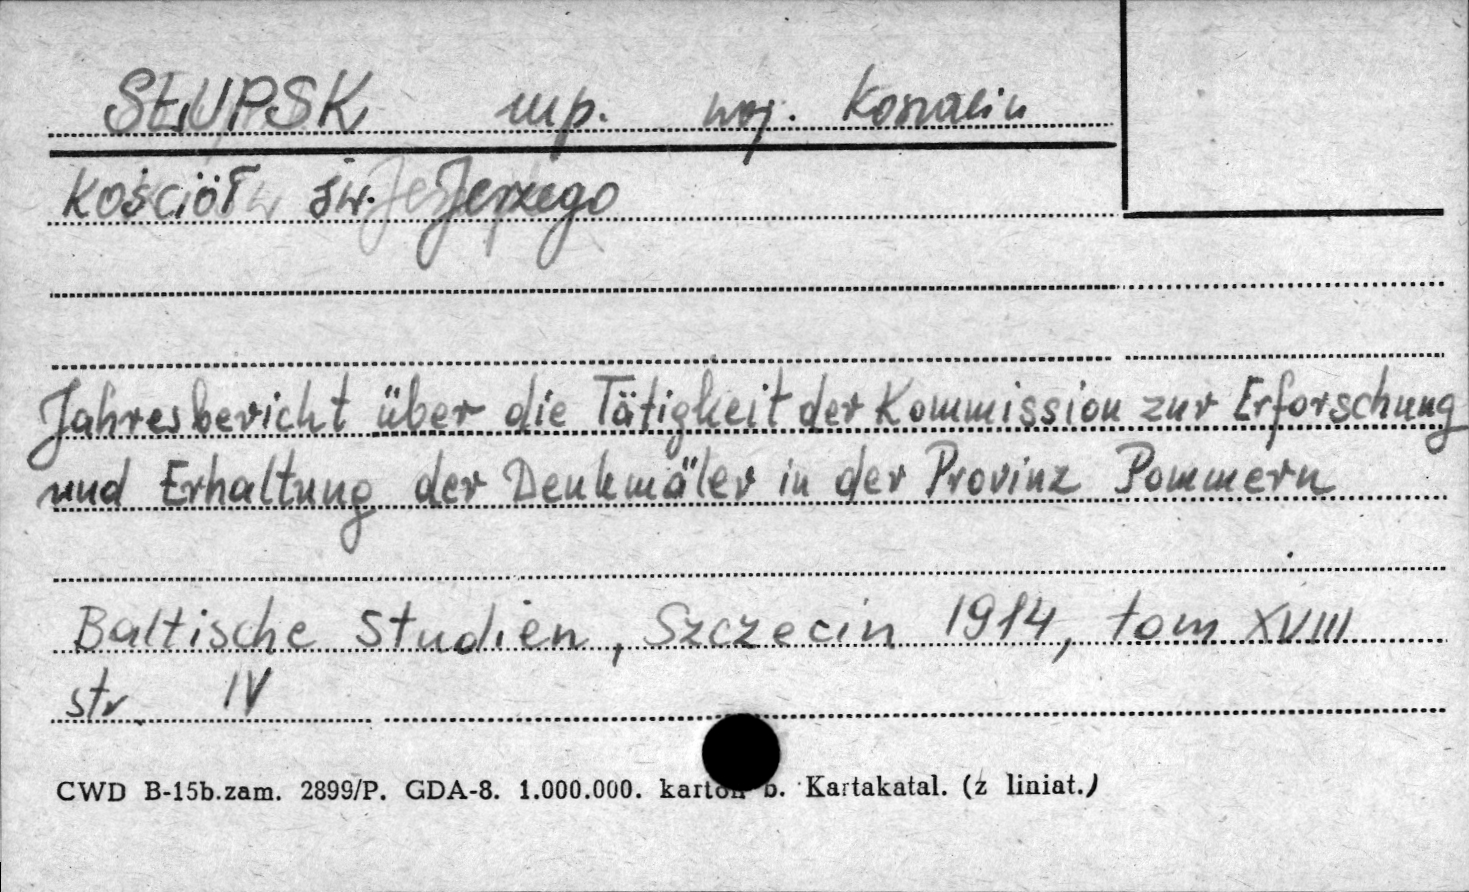 SŁUPSK mp. woj. Koszalin
Kościół św. Jerzego
Jahresbericht über die Tätigkeit der Kommission zur Erforschung
und Erhaltung der Denkmäler in der Provinz Pommern
Baltische Studien, Szczecin 1914, tom XVIII
str. IV
CWD B-15b.zam. 2899/P. GDA-8. 1.000.000. karton b. Kartakatal. (z liniat.)